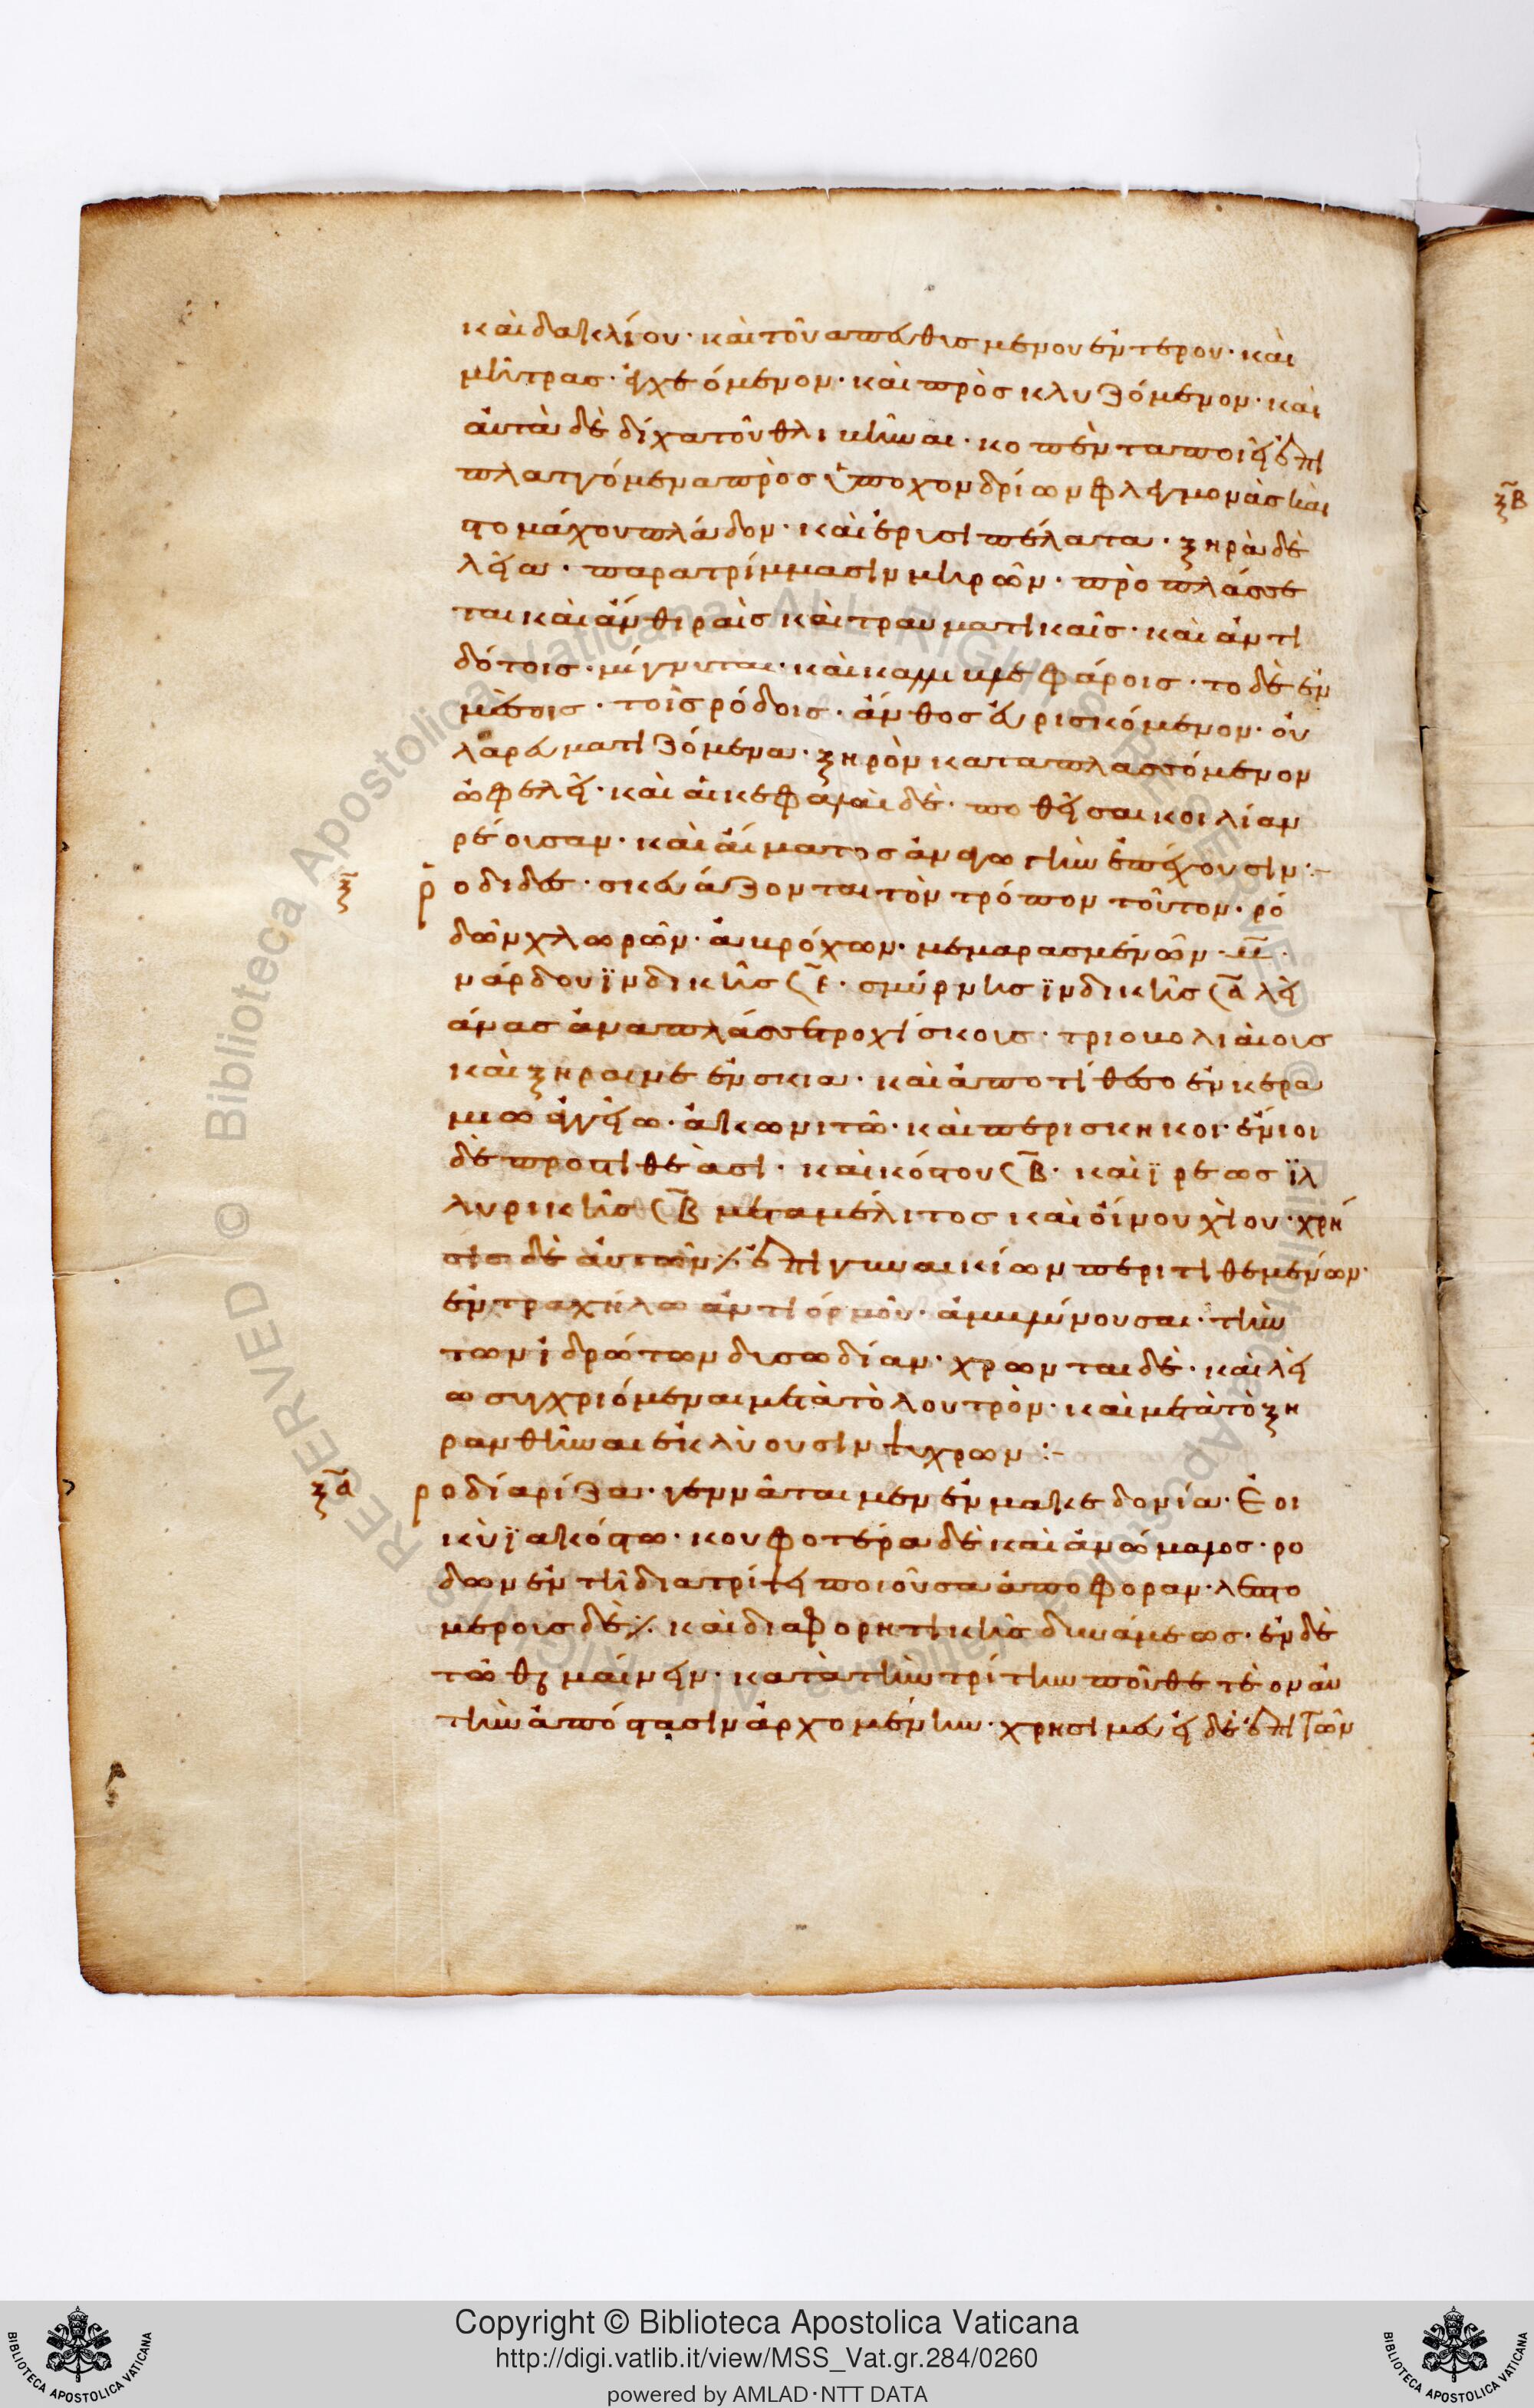 καὶ δακτυλίου· καὶ τοῦ ἀπευθισμένου ἐντέρου· καὶ
μήτρας· ἐγχεόμενον· καὶ προσκλυζόμενον· καὶ
αὐτὰ δὲ δίχα τοῦ θλιβῆναι· κοπέντα ποιεῖ ἐπι
πλαττόμενα πρὸς ὑποχονδρίων φλεγμονὰς καὶ
στομάχου πλάδον· καὶ ἐρυσιπέλατα· ξηρὰ δὲ
λεῖα· παρατρίμμασιν μηρῶν· προπλάσσε
ται καὶ ἀνθηραῖς καὶ τραυματικαῖς· καὶ ἀντι
δότοις· μίγνυται· καὶ βλεφάροις· το δὲ ἐν
μέσοις· τοῖς ρόδοις· ἄνθος εὑρισκόμενον· οὐ
λα ρευματιζόμενα· ξηρὸν καταπλασσόμενον
ὠφελεῖ· καὶ αἱ κεφαλαὶ δὲ· ποθεῖσαι κοιλίαν
ρέουσαν· καὶ αἵματος ἀναγωγὴν ἐπέχουσιν:–
ξ ροδίδες· σκευάζονται τὸν τρόπον τοῦτον· ρό
δων χλωρῶν· ἀβρόχων· μεμαρασμένων· μ̅·
νάρδου ϊνδικῆς ϛ ε· σμύρνης ϊνδικῆς ϛ α λει
άνας ἀναπλάσσε τροχίσκοις· τριοβολιαίοις
καὶ ξήραινε ἐν σκιᾶ· καὶ ἀποτίθεσο ἐν κερα
μίω ἀγγείω· ἀκωνίτω· καὶ περισκηκοι· ἔνιοι
δὲ προστιθέασι· καὶ κόστου ϛ β· καὶ ϊρεως ϊλ
λυρικῆς ϛ β μετα μέλιτος καὶ οἴνου χίου· χρῆ
σις δὲ αὐτῶν ἐπι γυναικίων περιτιθεμένων·
ἐν τραχήλω ἀντι ὅρμου· ἀμβλύνουσαι· τὴν
τῶν ἱδρώτων δυσωδίαν· χρῶνται δὲ· καὶ λεί
ω συγχριόμεναι μετὰ τὸ λουτρὸν· καὶ μετὰ τὸ ξη
ρανθῆναι ἐκλύουσιν ψυχρῶν:–
ξα ροδία ρίζα· γεννᾶται μὲν ἐν μακεδονία· ἐοι
κὺϊα κόστω· κουφοτέρα δὲ καὶ ἀνώμαλος· ρό
δων ἐν τῆ διατρίψει ποιοῦσα ἀποφοραν· λεπτο
μεροῦς δὲ καὶ διαφορητικῆς δυνάμεως· ἐν δὲ
τῶ θερμαίνειν· κατὰ τὴν τρίτην που θετέον αὐ
τὴν ἀπόστασιν ἀρχομένην· χρησιμεύει δὲ ἐπι τῶν
ξβ
Copyright © Biblioteca Apostolica Vaticana
http://digi.vatlib.it/view/MSS_Vat.gr.284/0260
powered by AMLAD·NTT DATA